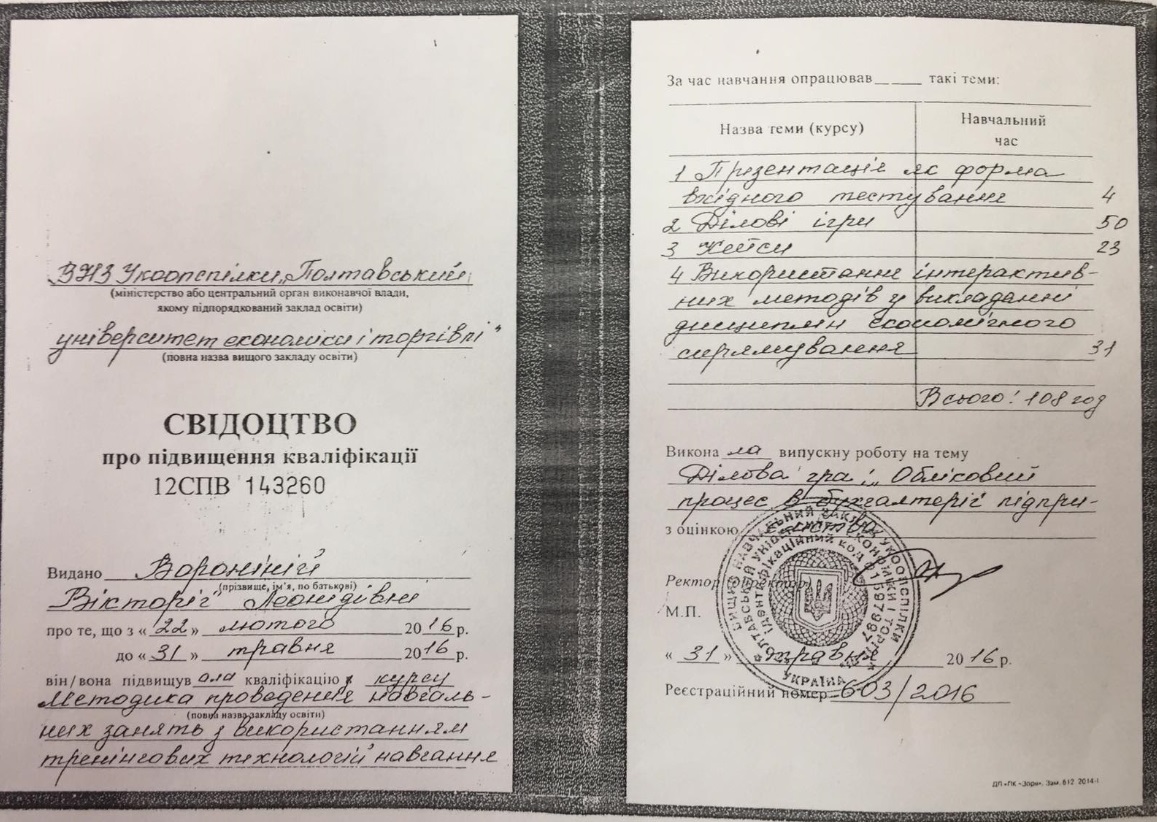 ВНЗ Укоопспілки „Полтавський
(міністерство або центральний орган виконавчої влади,
якому підпорядкований заклад освіти)
університет економіки і торгівлі"
(повна назва вищого закладу освіти)
СВІДОЦТВО
про підвищення кваліфікації
12СПВ 143260
Видано Вороніній
(прізвище, ім'я, по батькові)
Вікторії Леонідівні
про те, що з « 22 » лютого 2016 р.
до « 31 » травня 2016 р.
він/вона підвищувала кваліфікацію курсу
Методика проведення навчаль-
(повна назва закладу освіти)
них занять з використанням
тренінгових технологій навчання
За час навчання опрацював____ такі теми:
Назва теми (курсу) Навчальний
час
1 Презентація як форма
вхідного тестування 4
2 Ділові ігри 50
3 Кейси 23
4 Використання інтерактив-
них методів у викладанні
дисциплін економічного
спрямування 31
Всього: 108 год
Виконала випускну роботу на тему
Ділова гра: „Обліковий
процес в бухгалтерії підпри-
з оцінкою
Ректор
М.П.
« 31 » травня 2016 р.
Реєстраційний номер 603/2016
УКРАЇНА
ідентифікаційний код 01597997
ДП «ПК «Зоря». Зам. 812. 2014-І